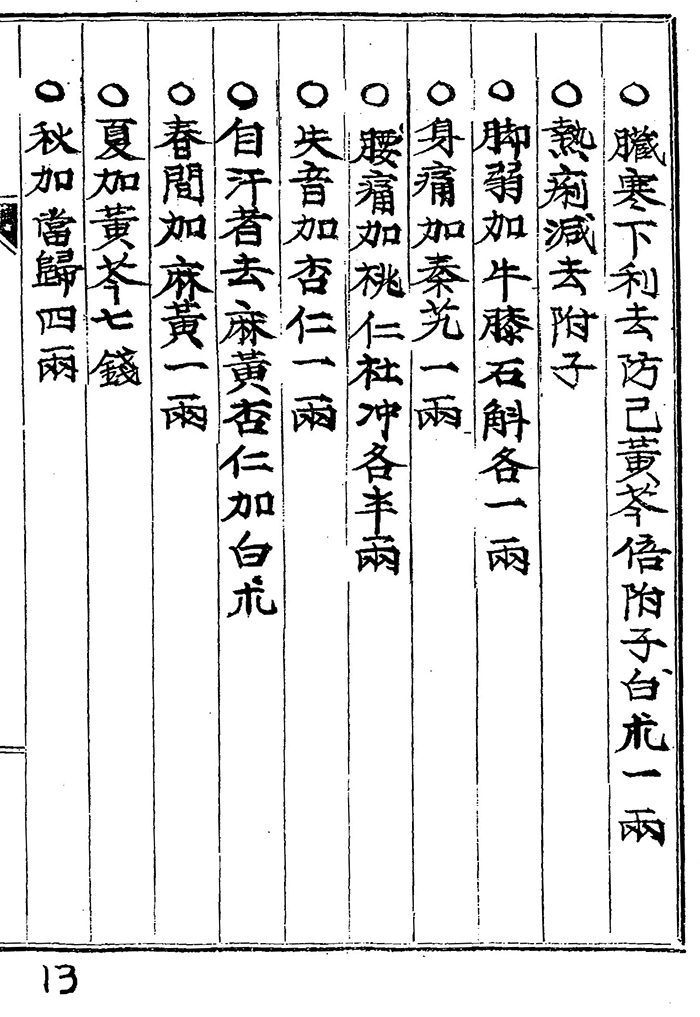 ○臟寒下利去防己黃芩倍附子白朮一兩
○熱痢減去附子
○脚弱加牛膝石斛各一兩
○身痛加秦艽一兩
○腰痛加桃仁杜冲各半兩
○失音加杏仁一兩
○自汗者去麻黃杏仁加白朮
○春間加麻黃一兩
○夏加黃芩七錢
○秋加當歸四兩
13